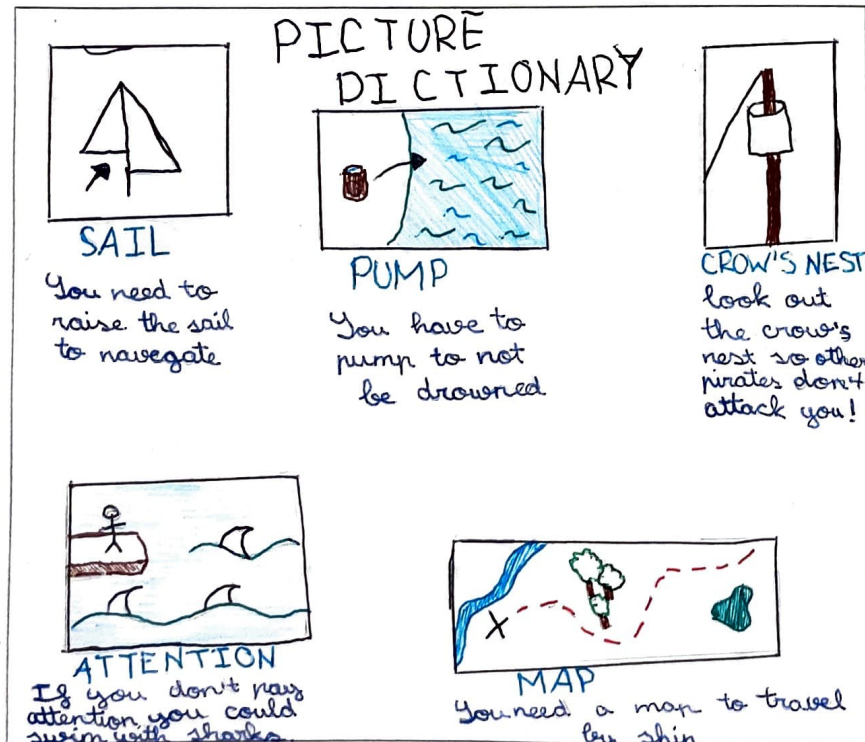 PICTURE
DICTIONARY
SAIL
You need to
raise the sail
to navegate
PUMP
You have to
pump to not
be drowned
CROW'S NEST
look out
the crow's
nest so other
pirates don't
attack you!
ATTENTION
If you don't pay
attention you could
swim with sharks.
MAP
You need a map to travel
by ship